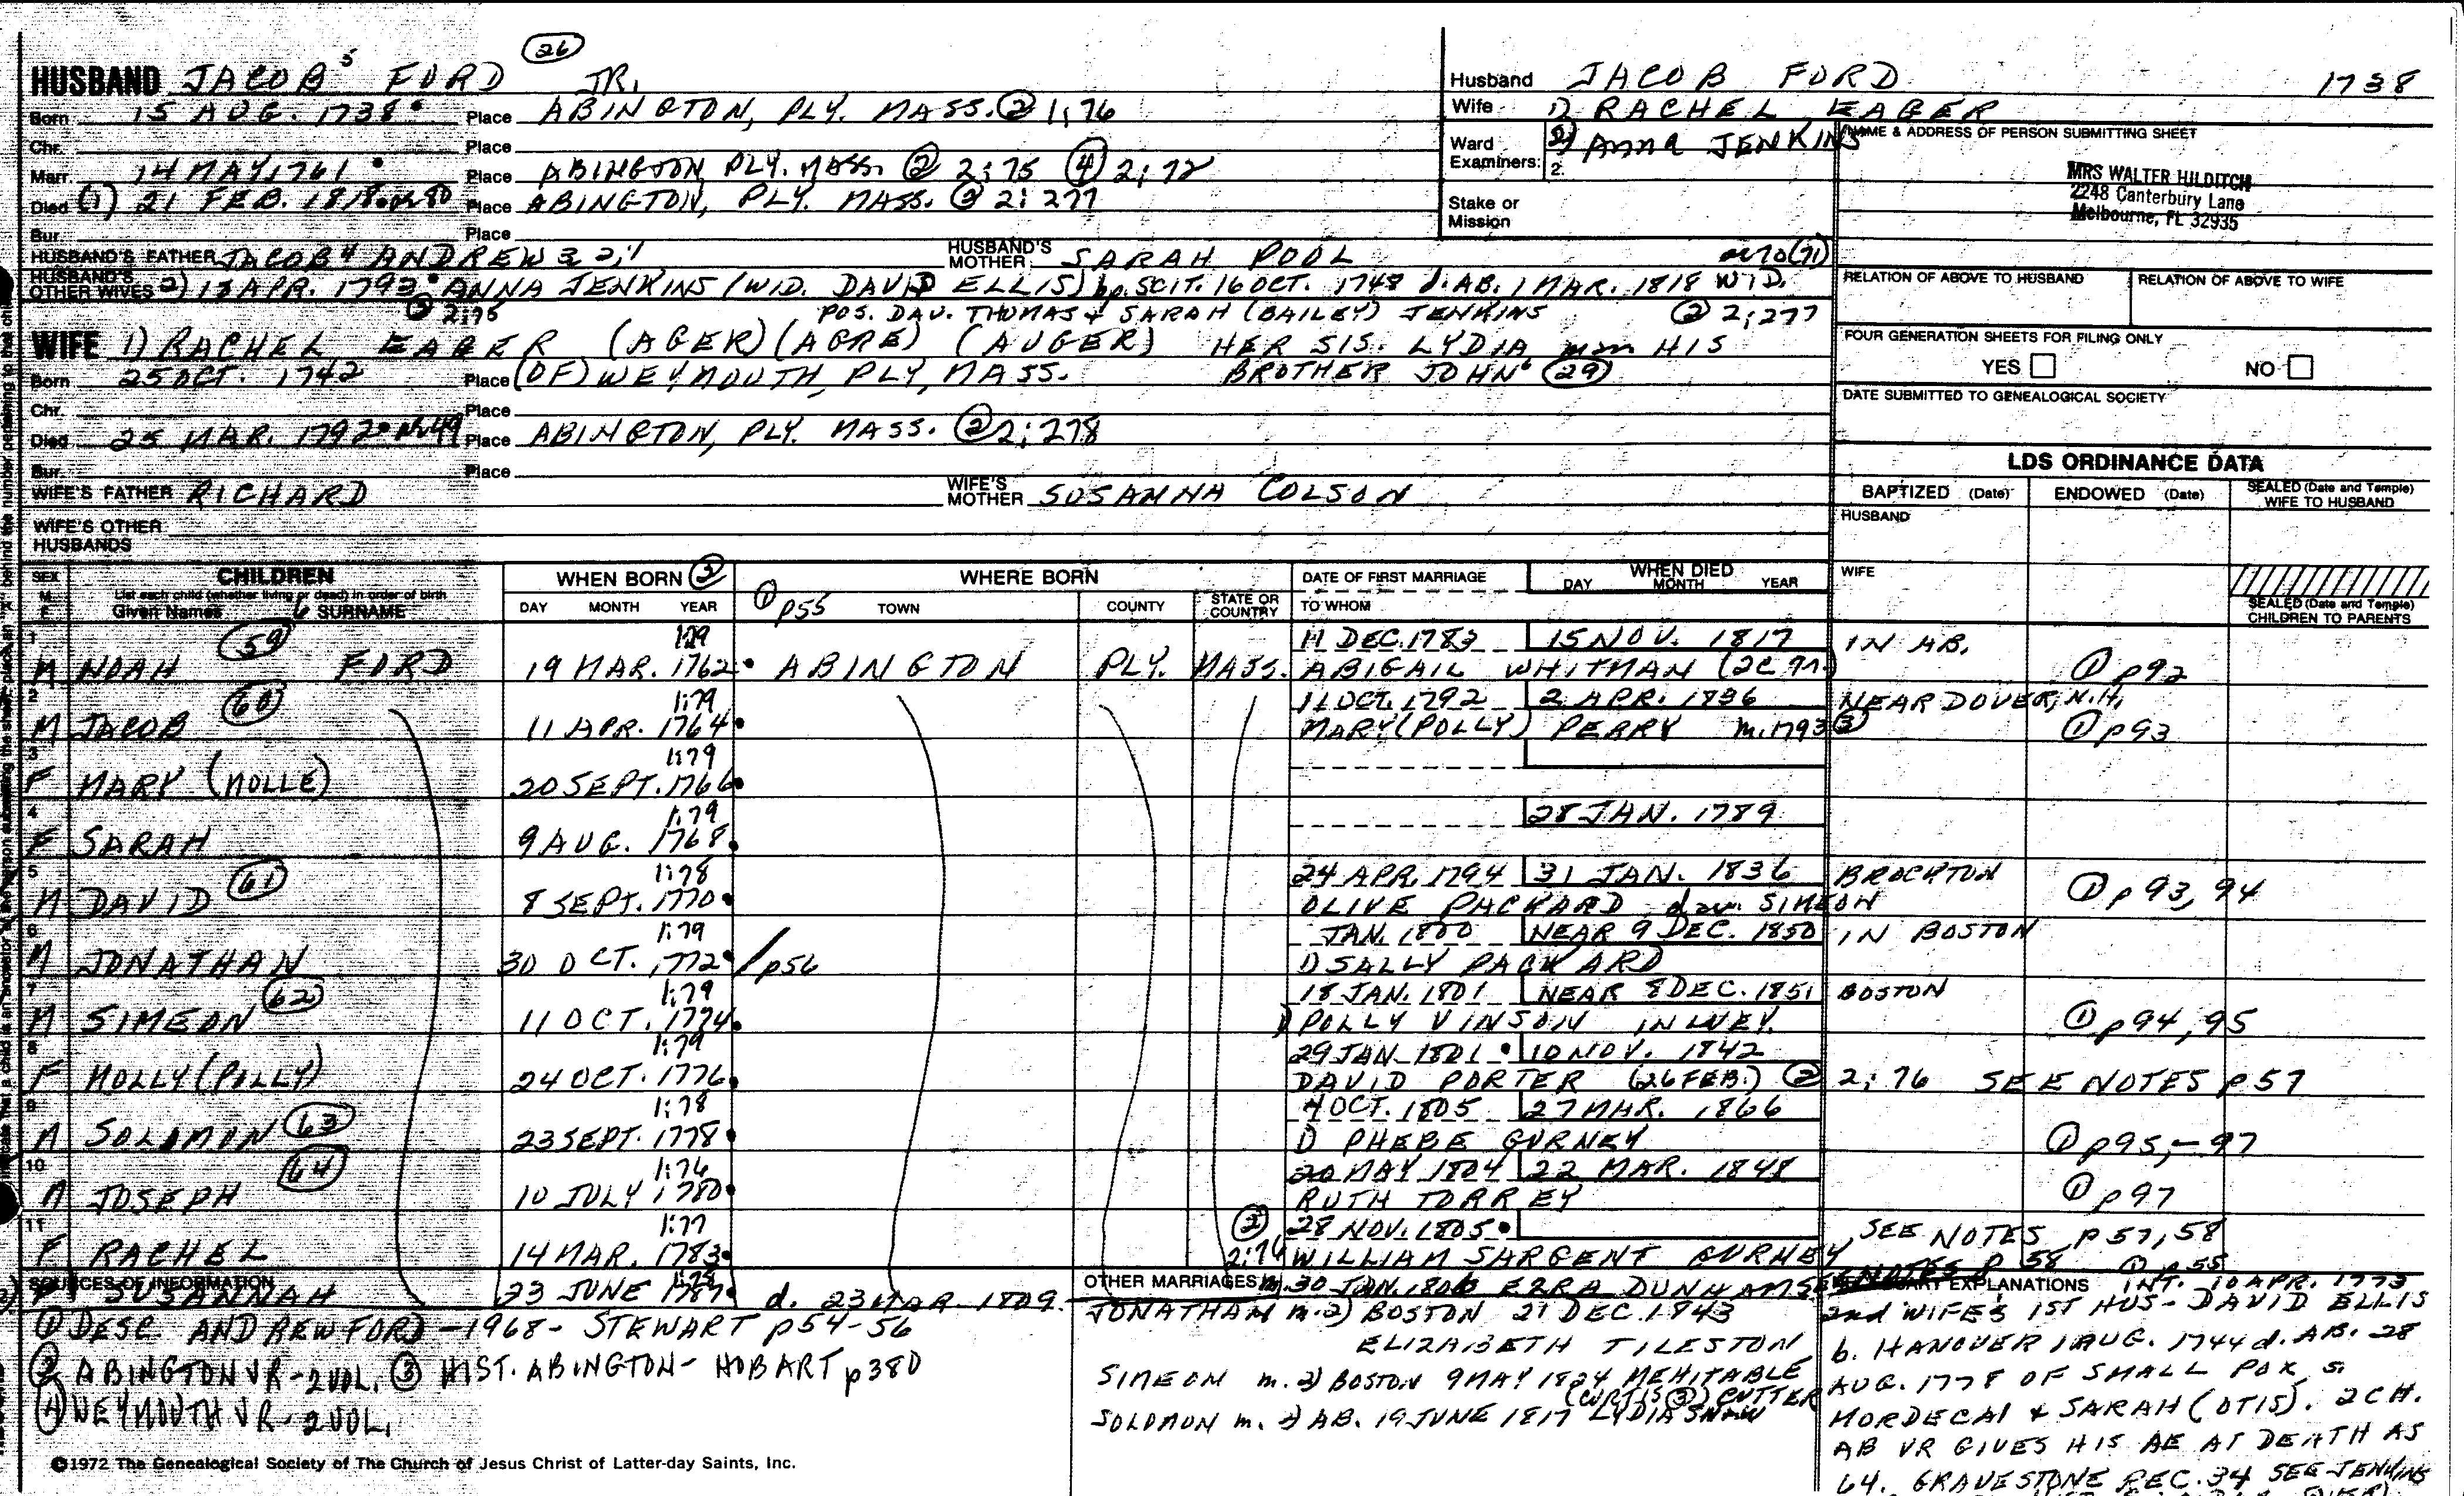 26
HUSBAND JACOB⁵ FORD JR.
Born 15 AUG. 1738 Place ABINGTON, PLY. MASS. ② 1:76
Chr. Place
Marr. 14 MAY 1761 Place ABINGTON PLY. MASS. ② 2:75 ④ 2:72
Died (1) 21 FEB. 1818 ae 80 Place ABINGTON, PLY. MASS. ② 2:277
Bur. Place
HUSBAND'S FATHER JACOB⁴ ANDREW 3 2, 1 HUSBAND'S MOTHER SARAH POOL
ae 70 (71)
HUSBAND'S OTHER WIVES 2) 13 APR. 1793 ANNA JENKINS (WID. DAVID ELLIS) bp. SCIT. 16 OCT. 1748 d. AB. 1 MAR. 1818 WID.
② 2:75 POS. DAU. THOMAS & SARAH (BAILEY) JENKINS ② 2:277
WIFE 1) RACHEL EAGER (AGER) (AGRE) (AUGER) HER SIS. LYDIA m HIS
Born 25 OCT. 1742 Place (OF) WEYMOUTH, PLY, MASS. BROTHER JOHN⁵ (29)
Chr. Place
Died 25 MAR. 1792 ae 49 Place ABINGTON, PLY. MASS. ② 2:278
Bur. Place
WIFE'S FATHER RICHARD WIFE'S MOTHER SUSANNA COLSON
WIFE'S OTHER HUSBANDS
Husband JACOB FORD 1738
Wife 1) RACHEL EAGER
Ward Examiners: 2) Anna JENKINS
2.
Stake or Mission
NAME & ADDRESS OF PERSON SUBMITTING SHEET
MRS WALTER HILDITCH
2248 Canterbury Lane
Melbourne, FL 32935
RELATION OF ABOVE TO HUSBAND RELATION OF ABOVE TO WIFE
FOUR GENERATION SHEETS FOR FILING ONLY
YES NO
DATE SUBMITTED TO GENEALOGICAL SOCIETY
LDS ORDINANCE DATA
BAPTIZED (Date) ENDOWED (Date) SEALED (Date and Temple) WIFE TO HUSBAND
HUSBAND
WIFE
SEALED (Date and Temple) CHILDREN TO PARENTS
SEX M F CHILDREN WHEN BORN ② WHERE BORN DATE OF FIRST MARRIAGE WHEN DIED
List each child (whether living or dead) in order of birth
Given Names 6 SURNAME DAY MONTH YEAR ① p55 TOWN COUNTY STATE OR COUNTRY TO WHOM DAY MONTH YEAR
1 59 1:79 11 DEC. 1783 15 NOV. 1817 IN AB.
M NOAH FORD 19 MAR. 1762 ABINGTON PLY. MASS. ABIGAIL WHITMAN ① p92
2 60 1:79 11 OCT. 1792 2 APR. 1836 NEAR DOVER, N.H.
M JACOB 11 APR. 1764 MARY (POLLY) PERRY m. 1793 ③ ① p93
3 1:79
F MARY (MOLLE) 20 SEPT. 1766
4 1:79 28 JAN. 1789
F SARAH 9 AUG. 1768
5 61 1:78 24 APR. 1794 31 JAN. 1836 BROCKTON
M DAVID 8 SEPT. 1770 OLIVE PACKARD dau. SIMEON ① p93, 94
6 1:79 JAN. 1800 NEAR 9 DEC. 1850 IN BOSTON
M JONATHAN 30 OCT. 1772 / p56 1) SALLY PACKARD
7 62 1:79 18 JAN. 1801 NEAR 8 DEC. 1851 BOSTON
M SIMEON 11 OCT. 1774 1) POLLY VINSON IN WEY. ① p94, 95
8 1:79 29 JAN 1801 10 NOV. 1842
F MOLLY (POLLY) 24 OCT. 1776 DAVID PORTER (26 FEB.) ② 2:76 SEE NOTES p57
9 63 1:78 4 OCT. 1805 27 MAR. 1866
M SOLOMON 23 SEPT. 1778 1) PHEBE GURNEY ① p95,-97
10 64 1:76 20 MAY 1804 22 MAR. 1848
M JOSEPH 10 JULY 1780 RUTH TORREY ① p97
11 1:77 ② 28 NOV. 1805 SEE NOTES p57, 58
F RACHEL 14 MAR. 1783 2:76 WILLIAM SARGENT GURNEY
SOURCES OF INFORMATION
F SUSANNAH 23 JUNE 1787 d. 23 MAR. 1809
OTHER MARRIAGES m. 30 JAN. 1806 EZRA DUNHAM
① DESC. ANDREW FORD - 1968 - STEWART p54-56
② ABINGTON VR - 2 VOL. ③ HIST. ABINGTON - HOBART p380
④ WEYMOUTH VR - 2 VOL.
JONATHAN m. 2) BOSTON 21 DEC. 1843
ELIZABETH TILESTON
SIMEON m. 2) BOSTON 9 MAY 1824 MEHITABLE
(CURTIS ③) CUTTER
SOLOMON m. 2) AB. 19 JUNE 1817 LYDIA SNOW
EXPLANATIONS INT. 10 APR. 1773
2nd WIFE'S 1ST HUS - DAVID ELLIS
b. HANOVER 1 AUG. 1744 d. AB. 28
AUG. 1778 OF SMALL POX s.
MORDECAI & SARAH (OTIS). 2 CH.
AB VR GIVES HIS AE AT DEATH AS
64. GRAVESTONE REC. 34 SEE JENKINS
©1972 The Genealogical Society of The Church of Jesus Christ of Latter-day Saints, Inc.